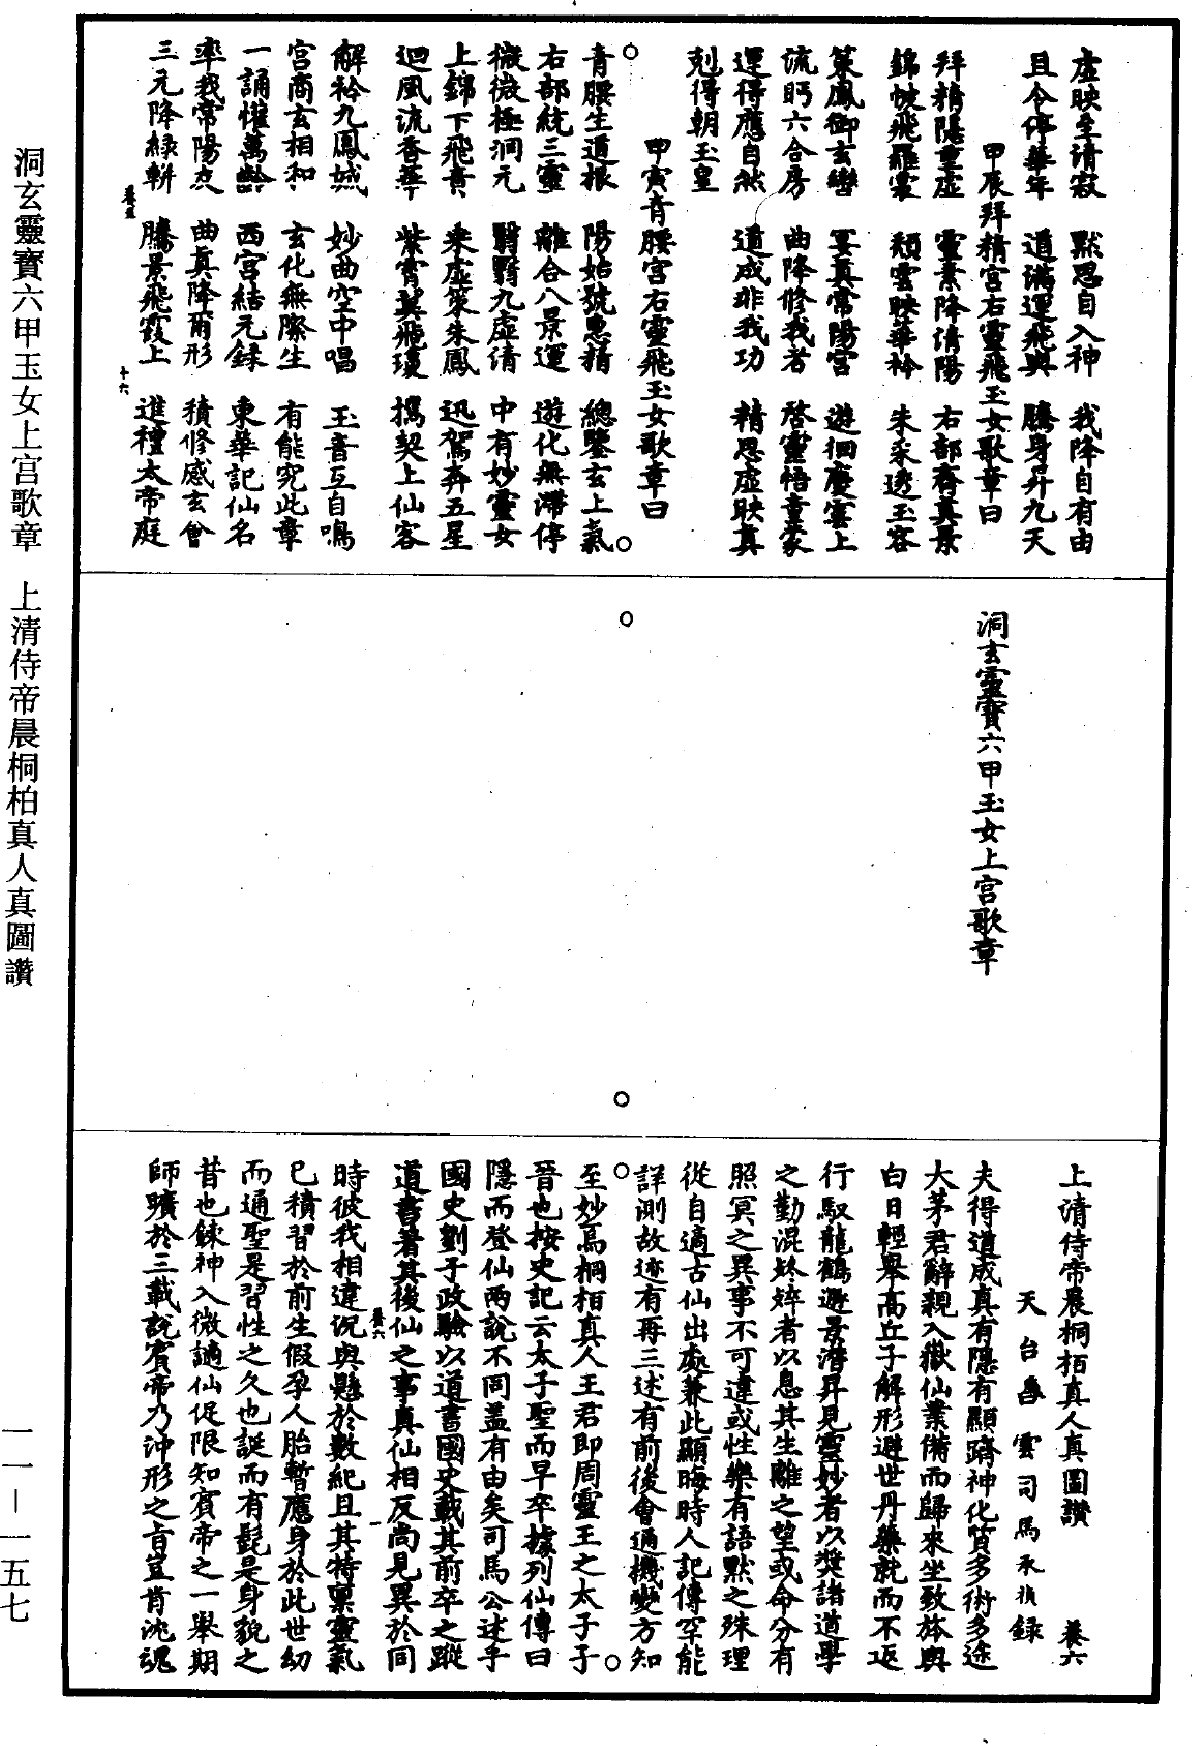 虛映至清寂　默思自入神　我降自有由
且令停華年　道滿運飛輿　騰身昇九天
甲辰拜精宮右靈飛玉女歌章曰
拜精隱重虛　靈素降清陽　右部齊真景
錦帔飛羅裳　頹雲映華衿　朱采透玉容
策鳳御玄轡　宴真常陽宮　遊徊慶雲上
流眄六合房　曲降修我者　啓靈悟童蒙
運得應自然　道成非我功　精思虛映真
剋得朝玉皇
甲寅青腰宮右靈飛玉女歌章曰
青腰生道根　陽始號惠精　總鑒玄上氣
右部統三靈　離合八景運　遊化無滯停
微微極洞元　翳翳九虛清　中有妙靈女
上錦下飛青　乘虛策朱鳳　迅駕奔五星
迴風流香華　紫霄翼飛瓊　攜契上仙客
解衿九鳳城　妙曲空中唱　玉音互自鳴
宮商玄相和　玄化無際生　有能究此章
一誦懽萬齡　西宮結元錄　東華記仙名
率我常陽友　曲真降爾形　積修感玄會
三元降綠軿　騰景飛霞上　進禮太帝庭
養五　十六
洞玄靈寶六甲玉女上宮歌章
上清侍帝晨桐栢真人真圖讚　養六
天台白雲司馬承禎錄
夫得道成真有隱有顯躋神化質多術多途
大茅君辭親入嶽仙業備而歸來坐致旍輿
白日輕舉高丘子解形避世丹藥就而不返
行馭龍鶴遯景潛昇見靈妙者以獎諸道學
之勤混終焠者以息其生離之望或命分有
照冥之異事不可違或性樂有語默之殊理
從自適古仙出處兼此顯晦時人記傳罕能
詳測故迹有再三述有前後會通機變方知
至妙焉桐栢真人王君即周靈王之太子子
晉也按史記云太子聖而早卒據列仙傳曰
隱而登仙兩說不同蓋有由矣司馬公述乎
國史劉子政驗以道書國史載其前卒之蹤
道書著其後仙之事真仙相反尚見異於同
養六　一
時彼我相違況輿懸於數紀且其特稟靈氣
已積習於前生假孕人胎暫應身於此世幼
而通聖是習性之久也誕而有髭是身貌之
昔也鍊神入微謫仙促限知賓帝之一舉期
師曠於三載說賓帝乃沖形之旨豈肯沈魂
洞玄靈寶六甲玉女上宮歌章　上清侍帝晨桐柏真人真圖讚
一一—一五七